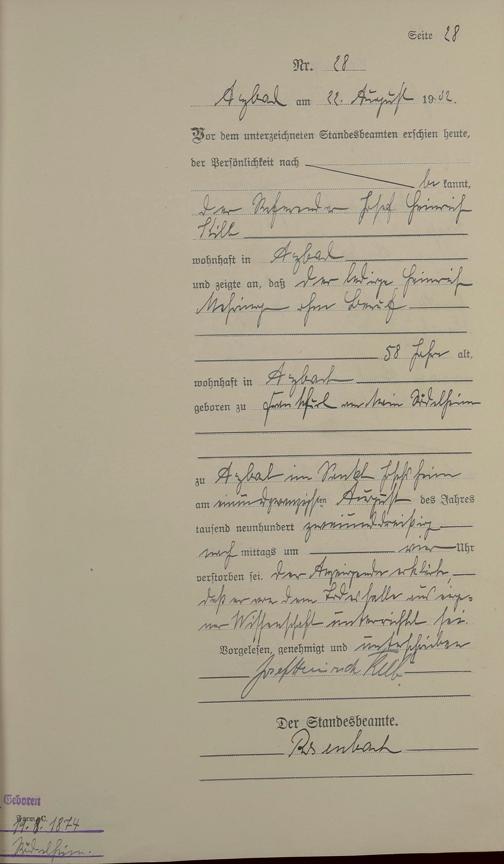 Seite 28
Nr. 28
Arzbach am 22. August 1932.
Vor dem unterzeichneten Standesbeamten erschien heute,
der Persönlichkeit nach
bekannt,
der Josef Heinrich
wohnhaft in Arzbach
und zeigte an, daß der ledige Heinrich
ohne Beruf
58 Jahre alt,
wohnhaft in Arzbach
geboren zu Frankfurt am Main Rödelheim
zu Arzbach im Sankt Josefsheim
am einundzwanzigsten August des Jahres
tausend neunhundert zweiunddreißig
nachmittags um vier Uhr
verstorben sei. Der Anzeigende erklärte,
daß er von dem Todesfalle aus eige-
ner Wissenschaft unterrichtet sei.
Vorgelesen, genehmigt und unterschrieben
Josef Heinrich
Der Standesbeamte.
Geboren
19.8.1874
Rödelheim.